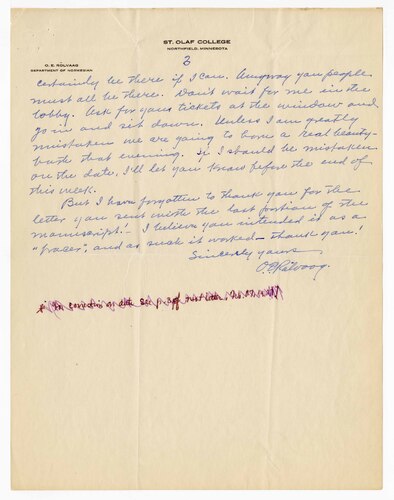 ST. OLAF COLLEGE
NORTHFIELD, MINNESOTA
O. E. ROLVAAG
DEPARTMENT OF NORWEGIAN
3
certainly be there if I can. Anyway you people
must all be there. Don't wait for me in the
lobby. Ask for your tickets at the window and
go in and sit down. Unless I am greatly
mistaken we are going to have a real beauty-
bath that evening. If I should be mistaken
on the date, I'll let you know before the end of
this week.
But I have forgotten to thank you for the
letter you sent with the last portion of the
manuscript! I believe you intended it as a
"bracer", and as such it worked — thank you!
Sincerely yours
O.E. Rölvaag.